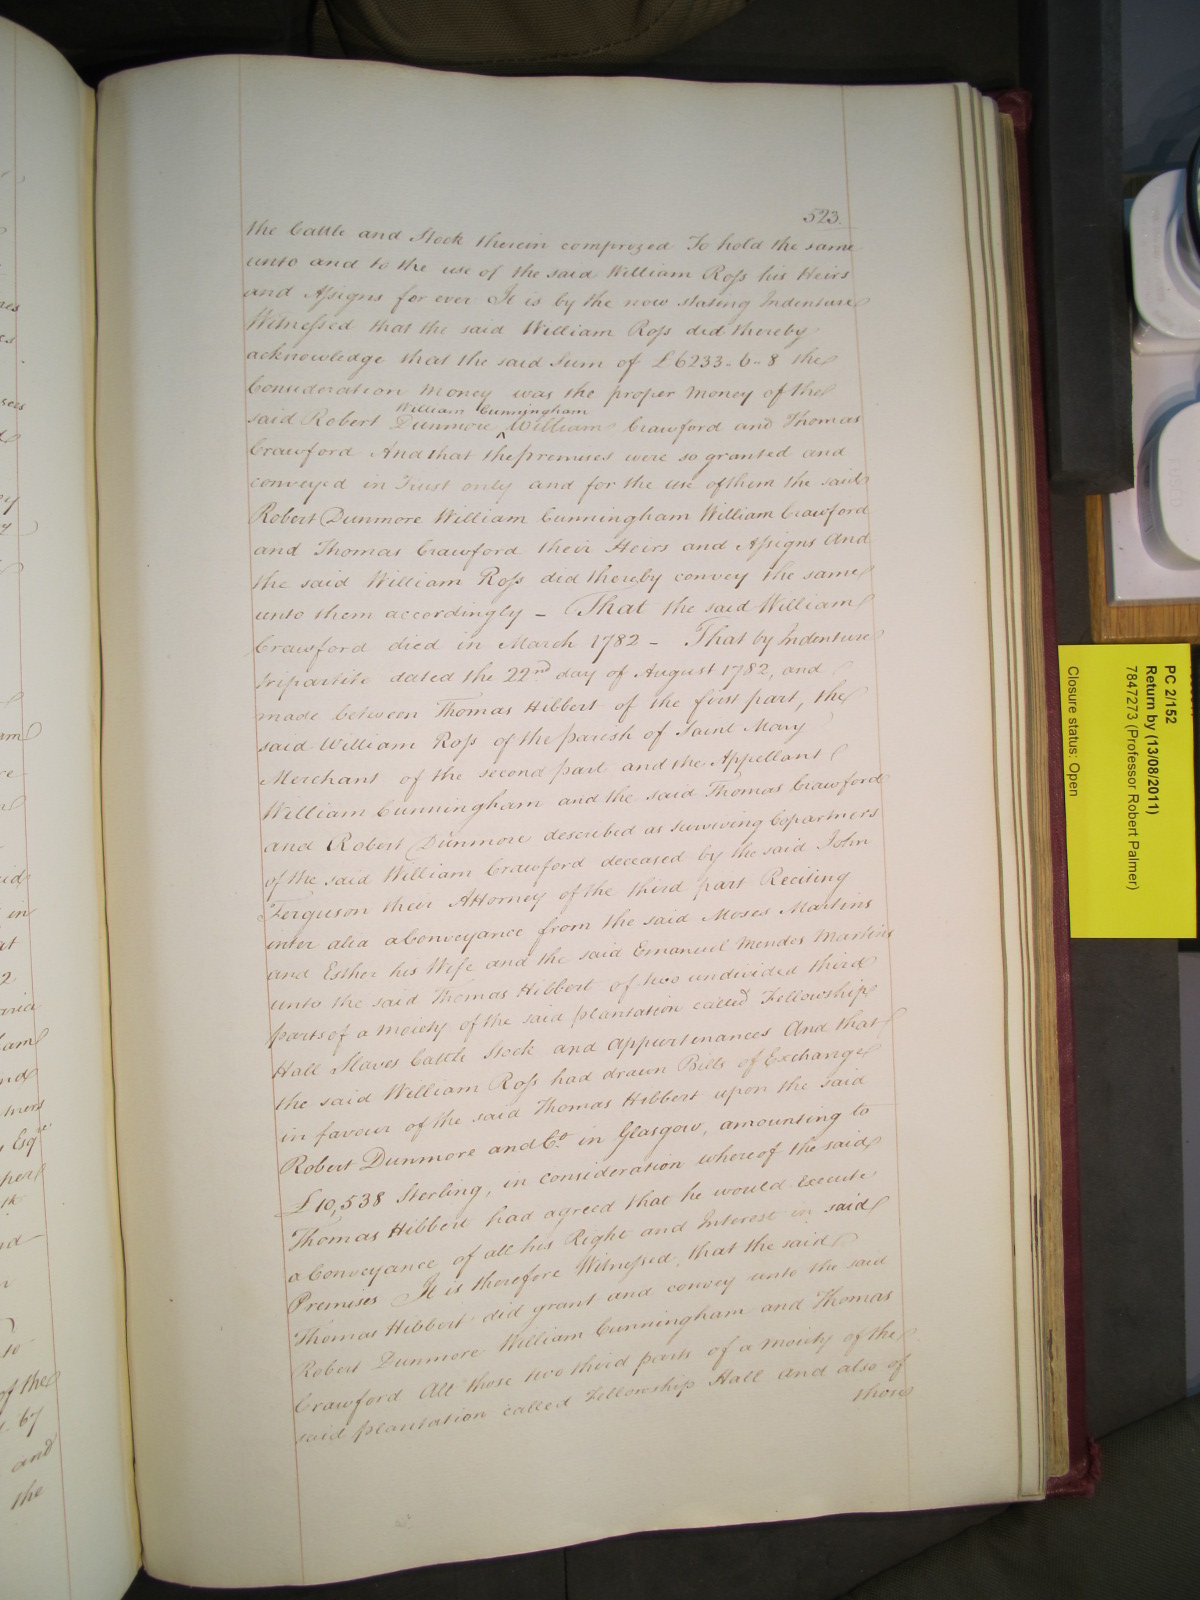 523.
the Cattle and Stock therein comprized To hold the same
unto and to the use of the said William Ross his Heirs
and Assigns for ever It is by the now stating Indenture
Witnessed that the said William Ross did thereby
acknowledge that the said Sum of £6233-6-8 the
Consideration Money was the proper Money of the
William Cunningham
said Robert Dunmore ^ William Crawford and Thomas
Crawford And that the premises were so granted and
conveyed in Trust only and for the use of them the said
Robert Dunmore William Cunningham William Crawford
and Thomas Crawford their Heirs and Assigns And
the said William Ross did thereby convey the same
unto them accordingly – That the said William
Crawford died in March 1782 – That by Indenture
tripartite dated the 22nd day of August 1782, and
made between Thomas Hibbert of the first part, the
said William Ross of the parish of Saint Mary
Merchant of the second part and the Appellant
William Cunningham and the said Thomas Crawford
and Robert Dunmore described as surviving Copartners
of the said William Crawford deceased by the said John
Ferguson their Attorney of the third part Reciting
inter alia a Conveyance from the said Moses Martins
and Esther his Wife and the said Emanuel Mendes Martins
unto the said Thomas Hibbert of two undivided third
parts of a moiety of the said plantation called Fellowship
Hall Slaves Cattle Stock and appurtenances And that
the said William Ross had drawn Bills of Exchange
in favour of the said Thomas Hibbert upon the said
Robert Dunmore and Co. in Glasgow, amounting to
£10,538 Sterling, in consideration whereof the said
Thomas Hibbert had agreed that he would execute
a Conveyance of all his Right and Interest in said
Premises It is therefore Witnessed, that the said
Thomas Hibbert did grant and convey unto the said
Robert Dunmore William Cunningham and Thomas
Crawford All those two third parts of a moiety of the
said plantation called Fellowship Hall and also of
those
PC 2/152
Return by (13/08/2011)
7847273 (Professor Robert Palmer)
Closure status: Open